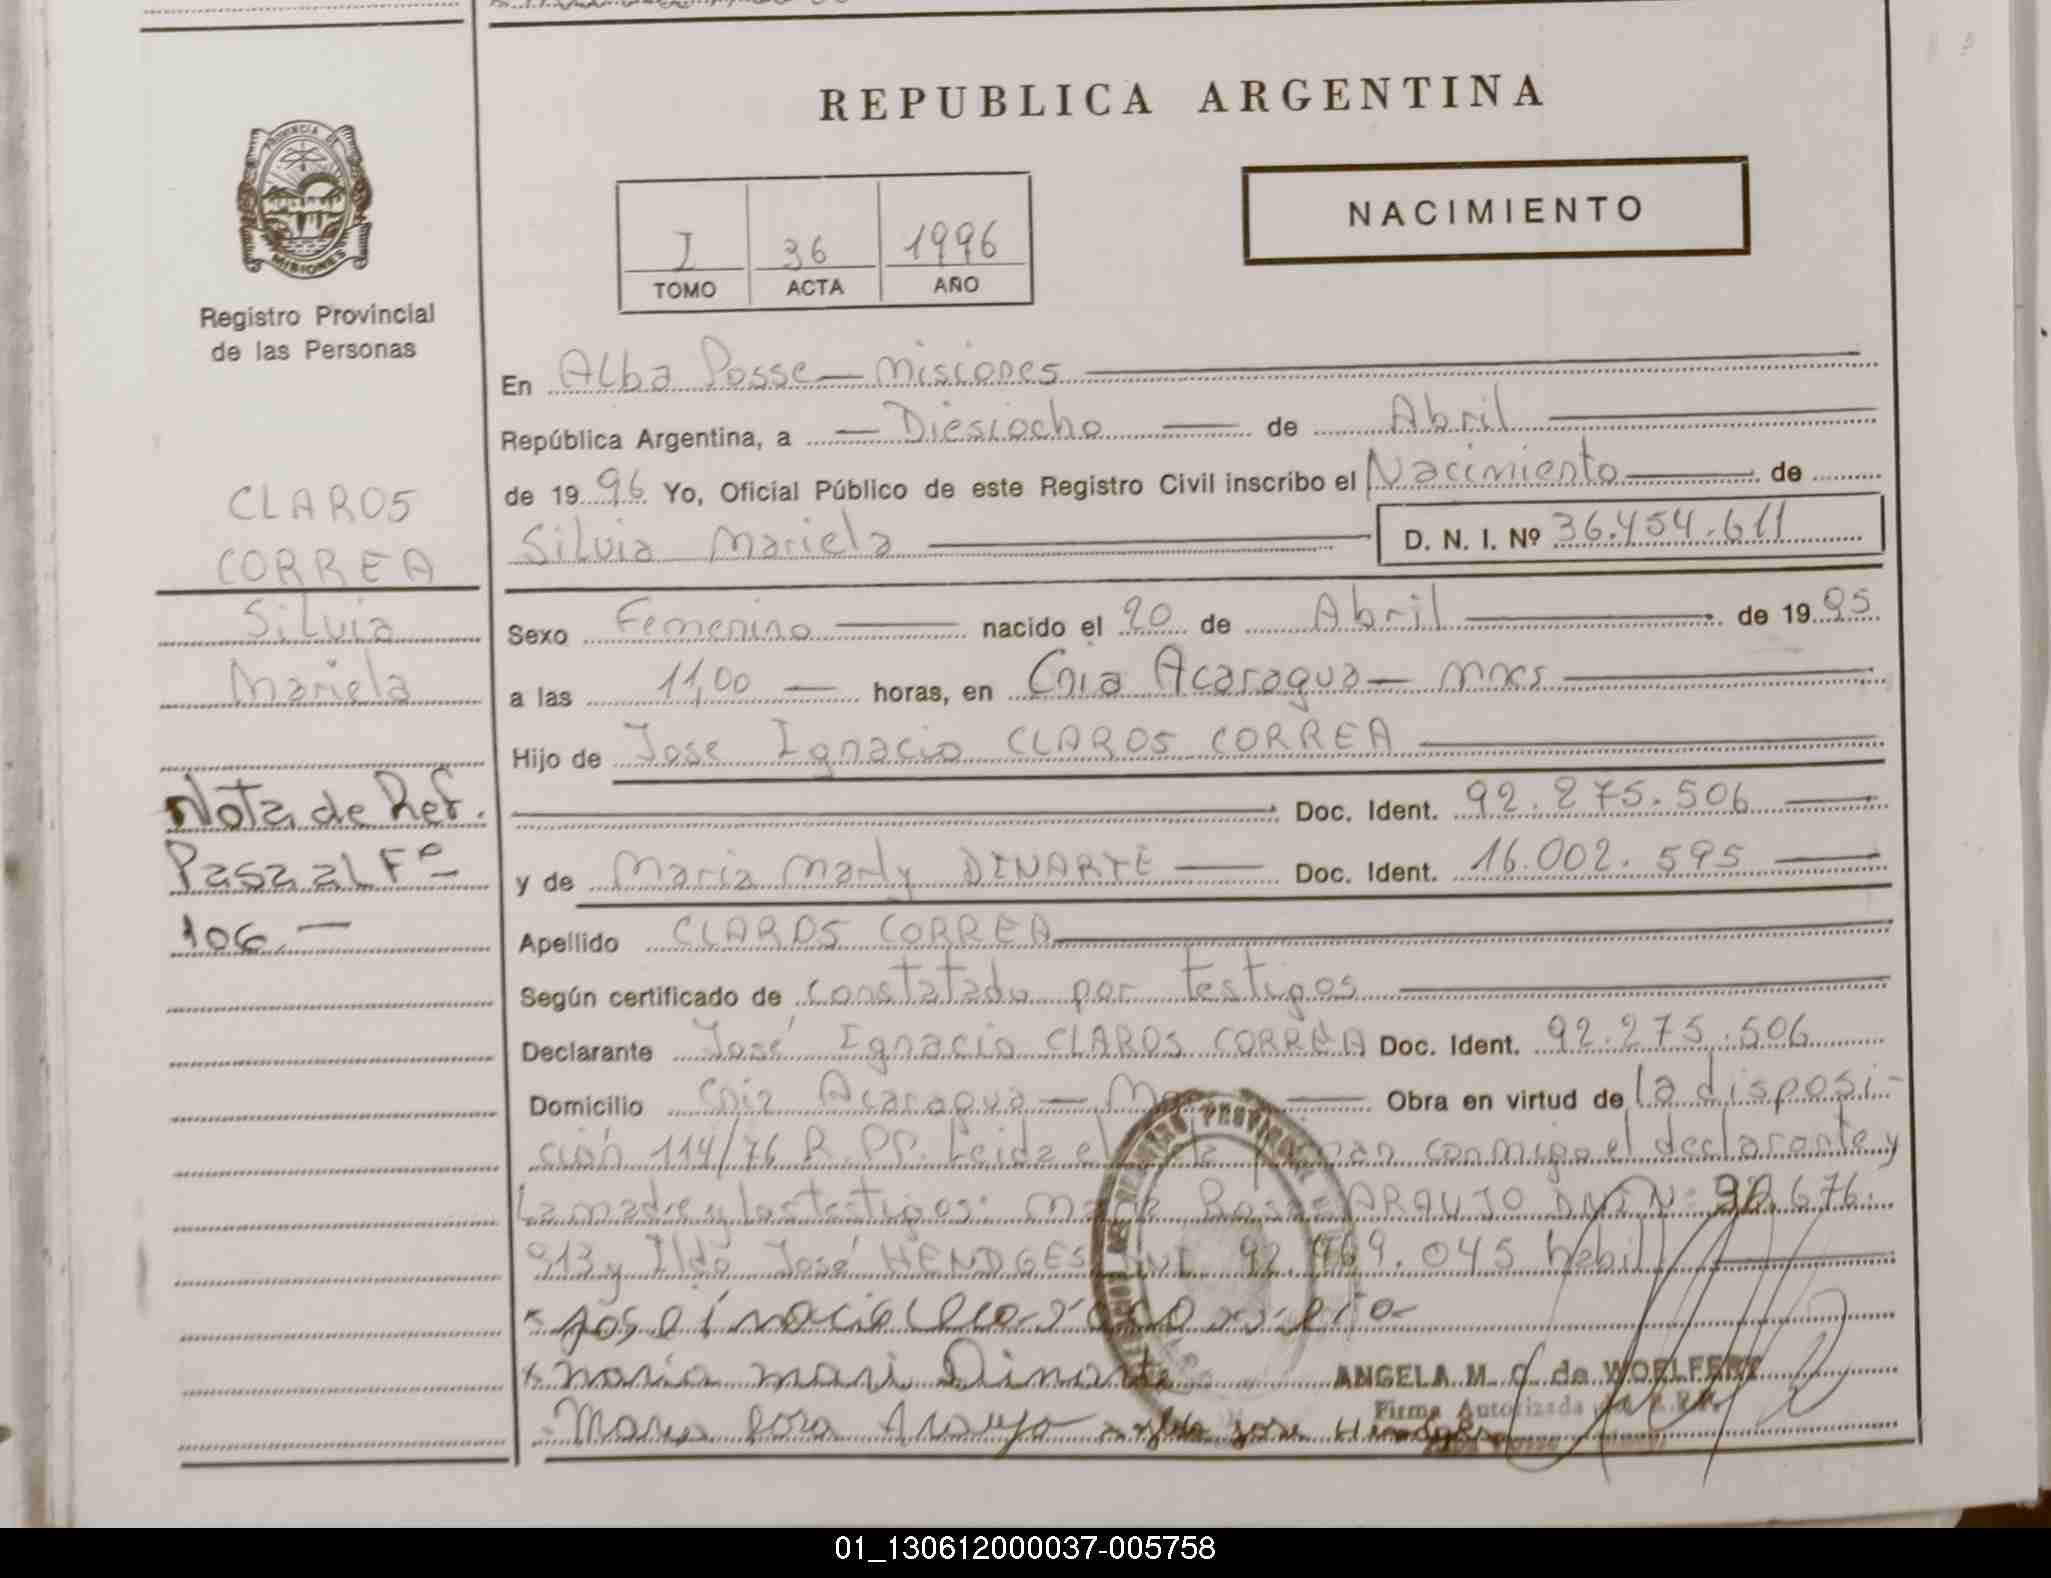 REPUBLICA ARGENTINA
PROVINCIA DE
MISIONES
Registro Provincial
de las Personas
I 36 1996
TOMO ACTA AÑO
NACIMIENTO
CLAROS
CORREA
Silvia
Mariela
Nota de Ref.
Pasa al Fº
106.—
En Alba Posse — Misiones
República Argentina, a — Diesiocho — de Abril
de 1996 Yo, Oficial Público de este Registro Civil inscribo el Nacimiento de
Silvia Mariela D. N. I. Nº 36.454.611
Sexo Femenino nacido el 20 de Abril de 1995
a las 11,00 — horas, en Cnia Acaragua — mnes
Hijo de Jose Ignacio CLAROS CORREA
Doc. Ident. 92.275.506
y de Maria Marly DINARTE Doc. Ident. 16.002.595
Apellido CLAROS CORREA
Según certificado de Constatado por testigos
Declarante José Ignacio CLAROS CORREA Doc. Ident. 92.275.506
Domicilio Cnia Acaragua — Obra en virtud de la disposi-
ción 114/76 R.PP. Leida el conmigo el declarante y
la madre y los testigos: ARAUJO DNI Nº 676.
913 y Ildo José HENDGES DNI 92.769.045 habil
maria mari Dinarte
ANGELA M. C. de WOELFERT
Firma Autorizada
Maria Rosa Araujo Jose Hendges
01_130612000037-005758